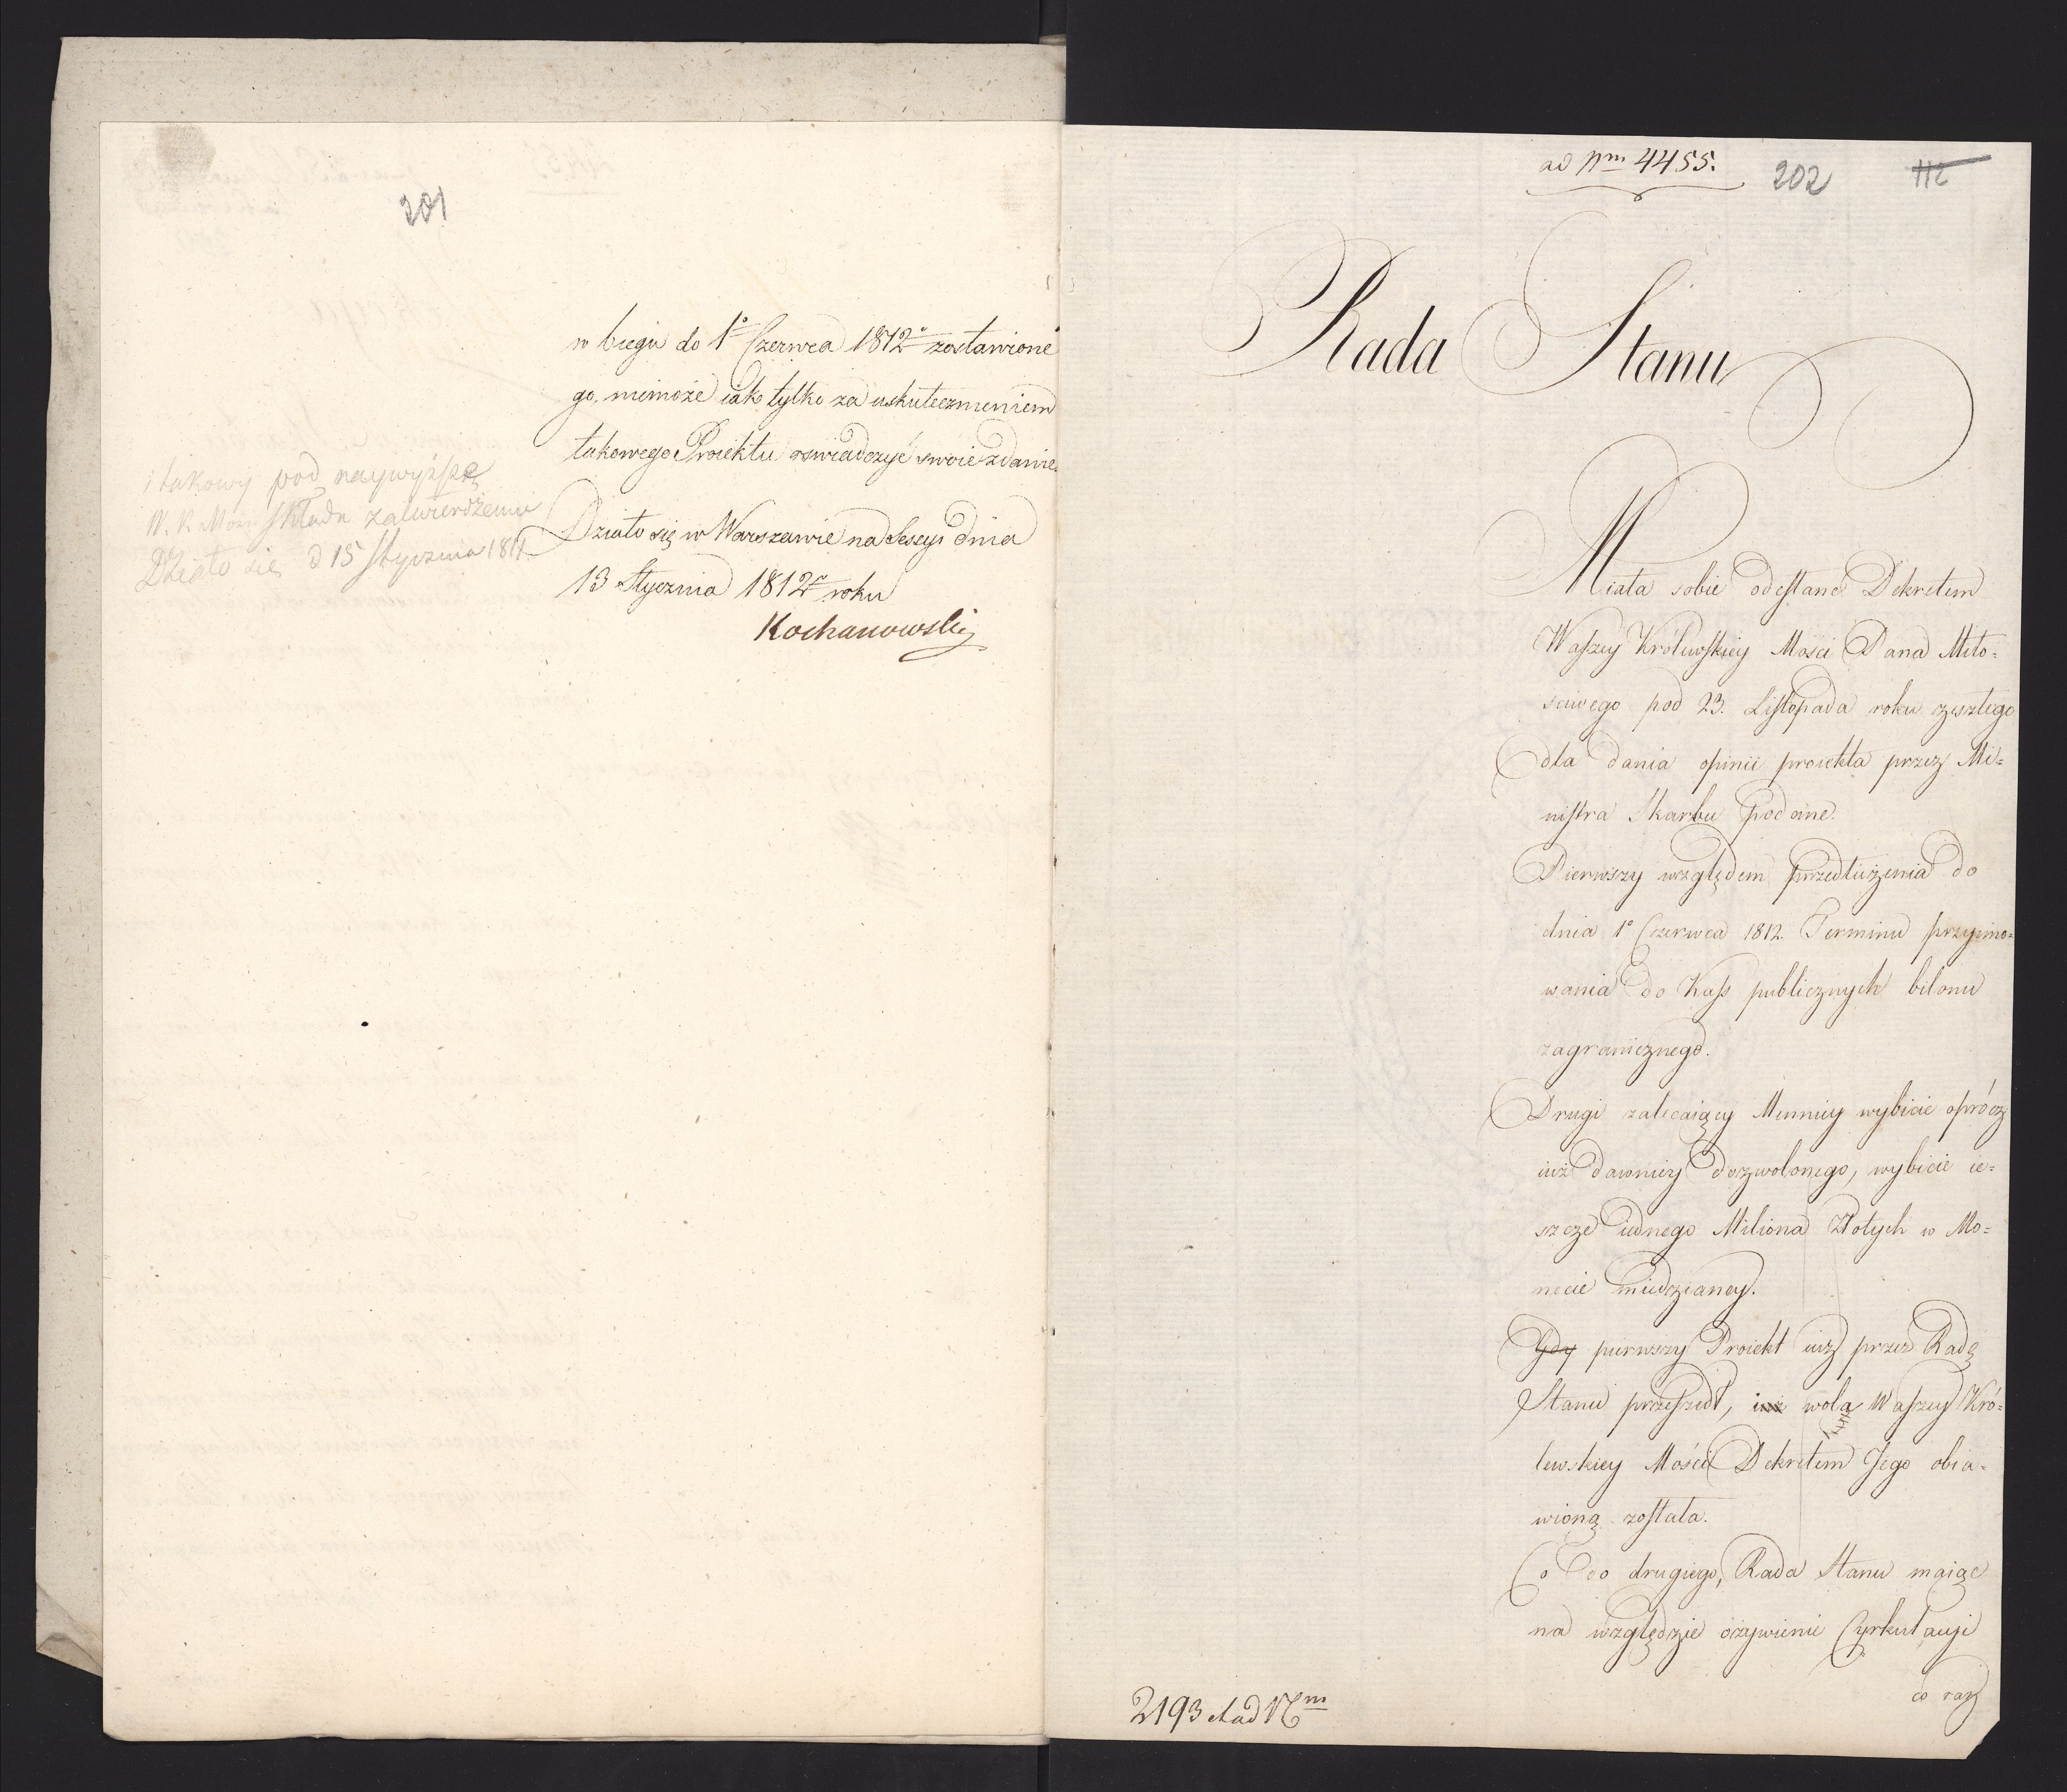 201
w biegu do 1º Czerwca 1812º zostawione
go, niemoże iak tylko za uskutecznieniem
takowego Proiektu oswiadczyć swoie zdanie.
i takowy pod naywyższe
W. K. Mości składa zatwierdzenie
Działo się d 15 Stycznia 181
Działo się w Warszawie na Sessyi dnia
13 Stycznia 1812º roku
Kochanowski
ad Nm 4455.
202
112
Rada Stanu
Miała sobie odesłane Dekretem
Waszey Królewskiey Mości Pana Miło=
sciwego pod 23. Listopada roku zeszłego
dla dania opinii proiekta przez Mi=
nistra Skarbu podane.
Pierwszy względem przedłużenia do
dnia 1º Czerwca 1812. Terminu przyimo=
wania do Kass publicznych bilonu
zagranicznego.
Drugi zalecaiący Mennicy wybicie oprócz
iuż dawniey dozwolonego, wybicie ie=
szcze iednego Miliona Złotych w Mo=
necie miedzianey.
Gdy pierwszy Proiekt iuż przez Radę
Stanu przeszedł, iuż wola Waszey Kró=
lewskiey Mości Dekretem Jego obia=
wioną została.
Co do drugiego, Rada Stanu maiąc
na względzie ożywienie Cyrkulacyi
co raz
2193 ad Nm